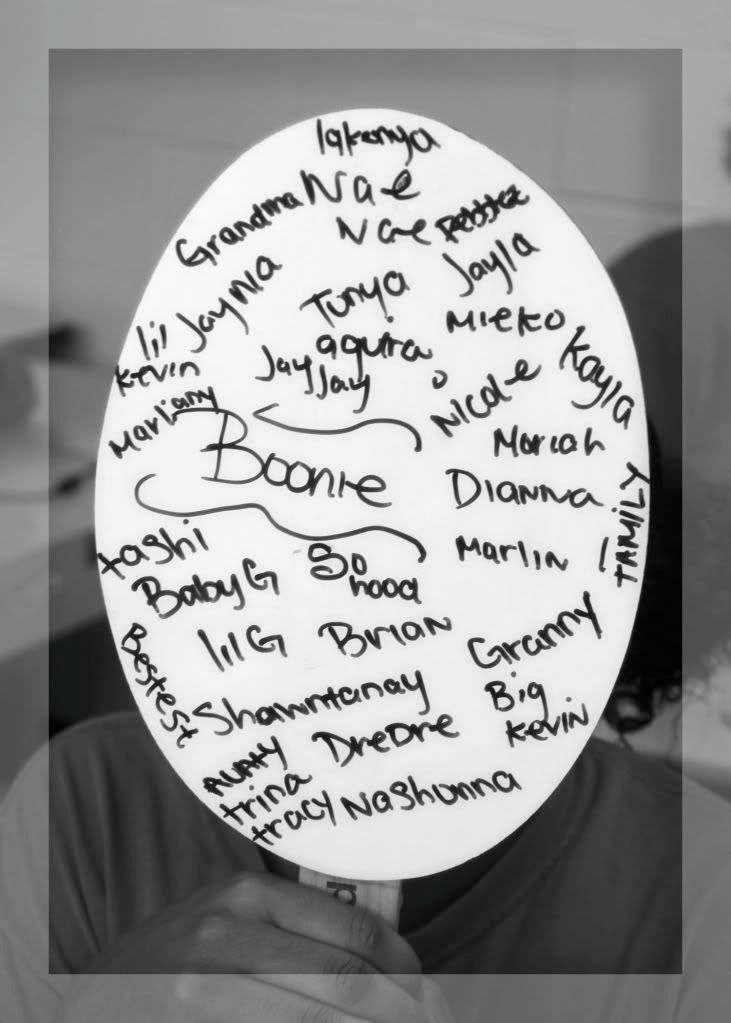 Iakenya
Grandma Nae
Nae
Jayla
lil Jaynia
Tunya
Mieko
Kevin
Jay
Jay
Kayla
Marliany
Nicole
Boonie
Moriah
Dianna
FAMILY
tashi
So
hood
Marlin
Baby G
lil G
Brian
Granny
Bestest
Shawntanay
Big
Kevin
AUNTY
DreDre
trina
tracy Nashunna